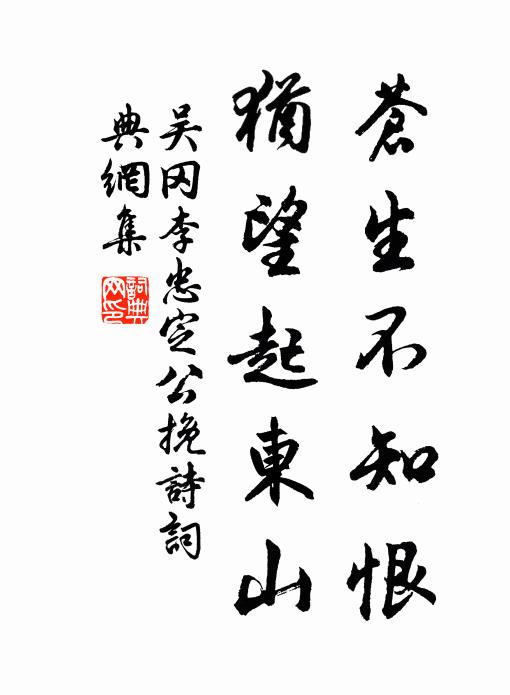 蒼生不知恨
猶望起東山
吴冈李忠定公挽詩詞
典網集
詞典网印